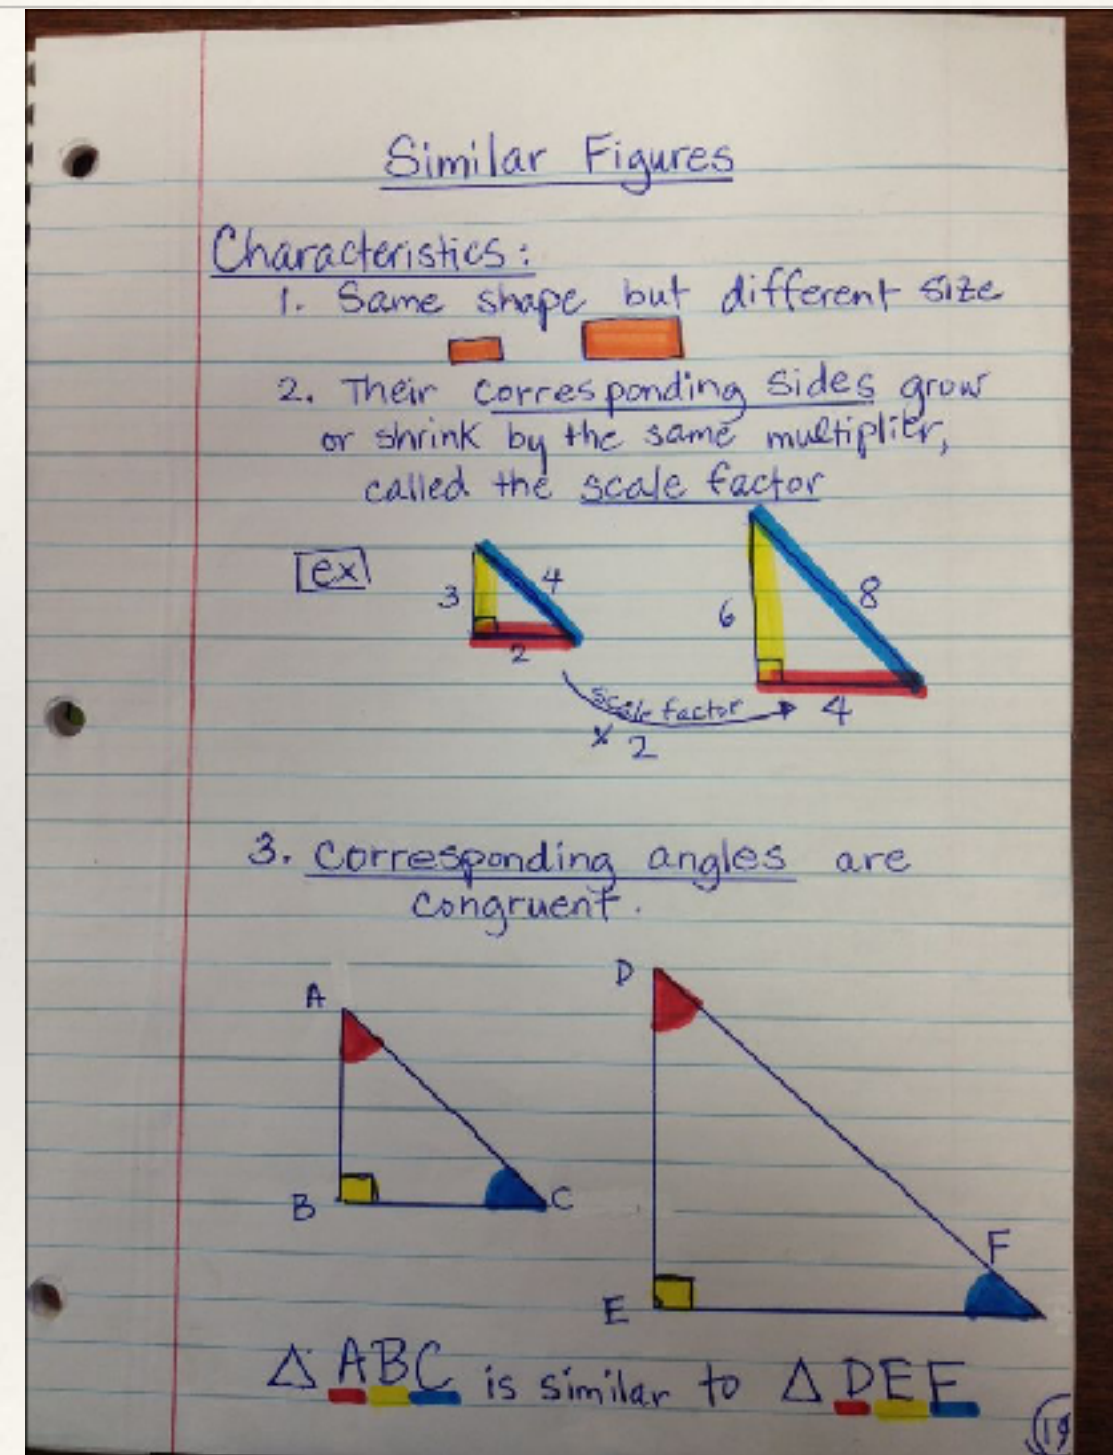 Similar Figures
Characteristics:
1. Same shape but different size
2. Their corresponding sides grow
or shrink by the same multiplier,
called the scale factor
ex
3
4
2
6
8
4
scale factor
x 2
3. Corresponding angles are
congruent.
A
B
C
D
E
F
△ ABC is similar to △ DEF
19